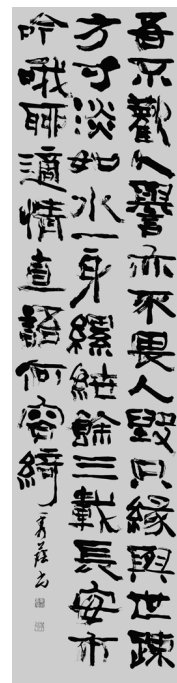 吾不歡人譽亦不畏人毀只緣與世疎
方寸淡如水一身縲紲餘三載長安市
吟哦聊適情直語何容綺